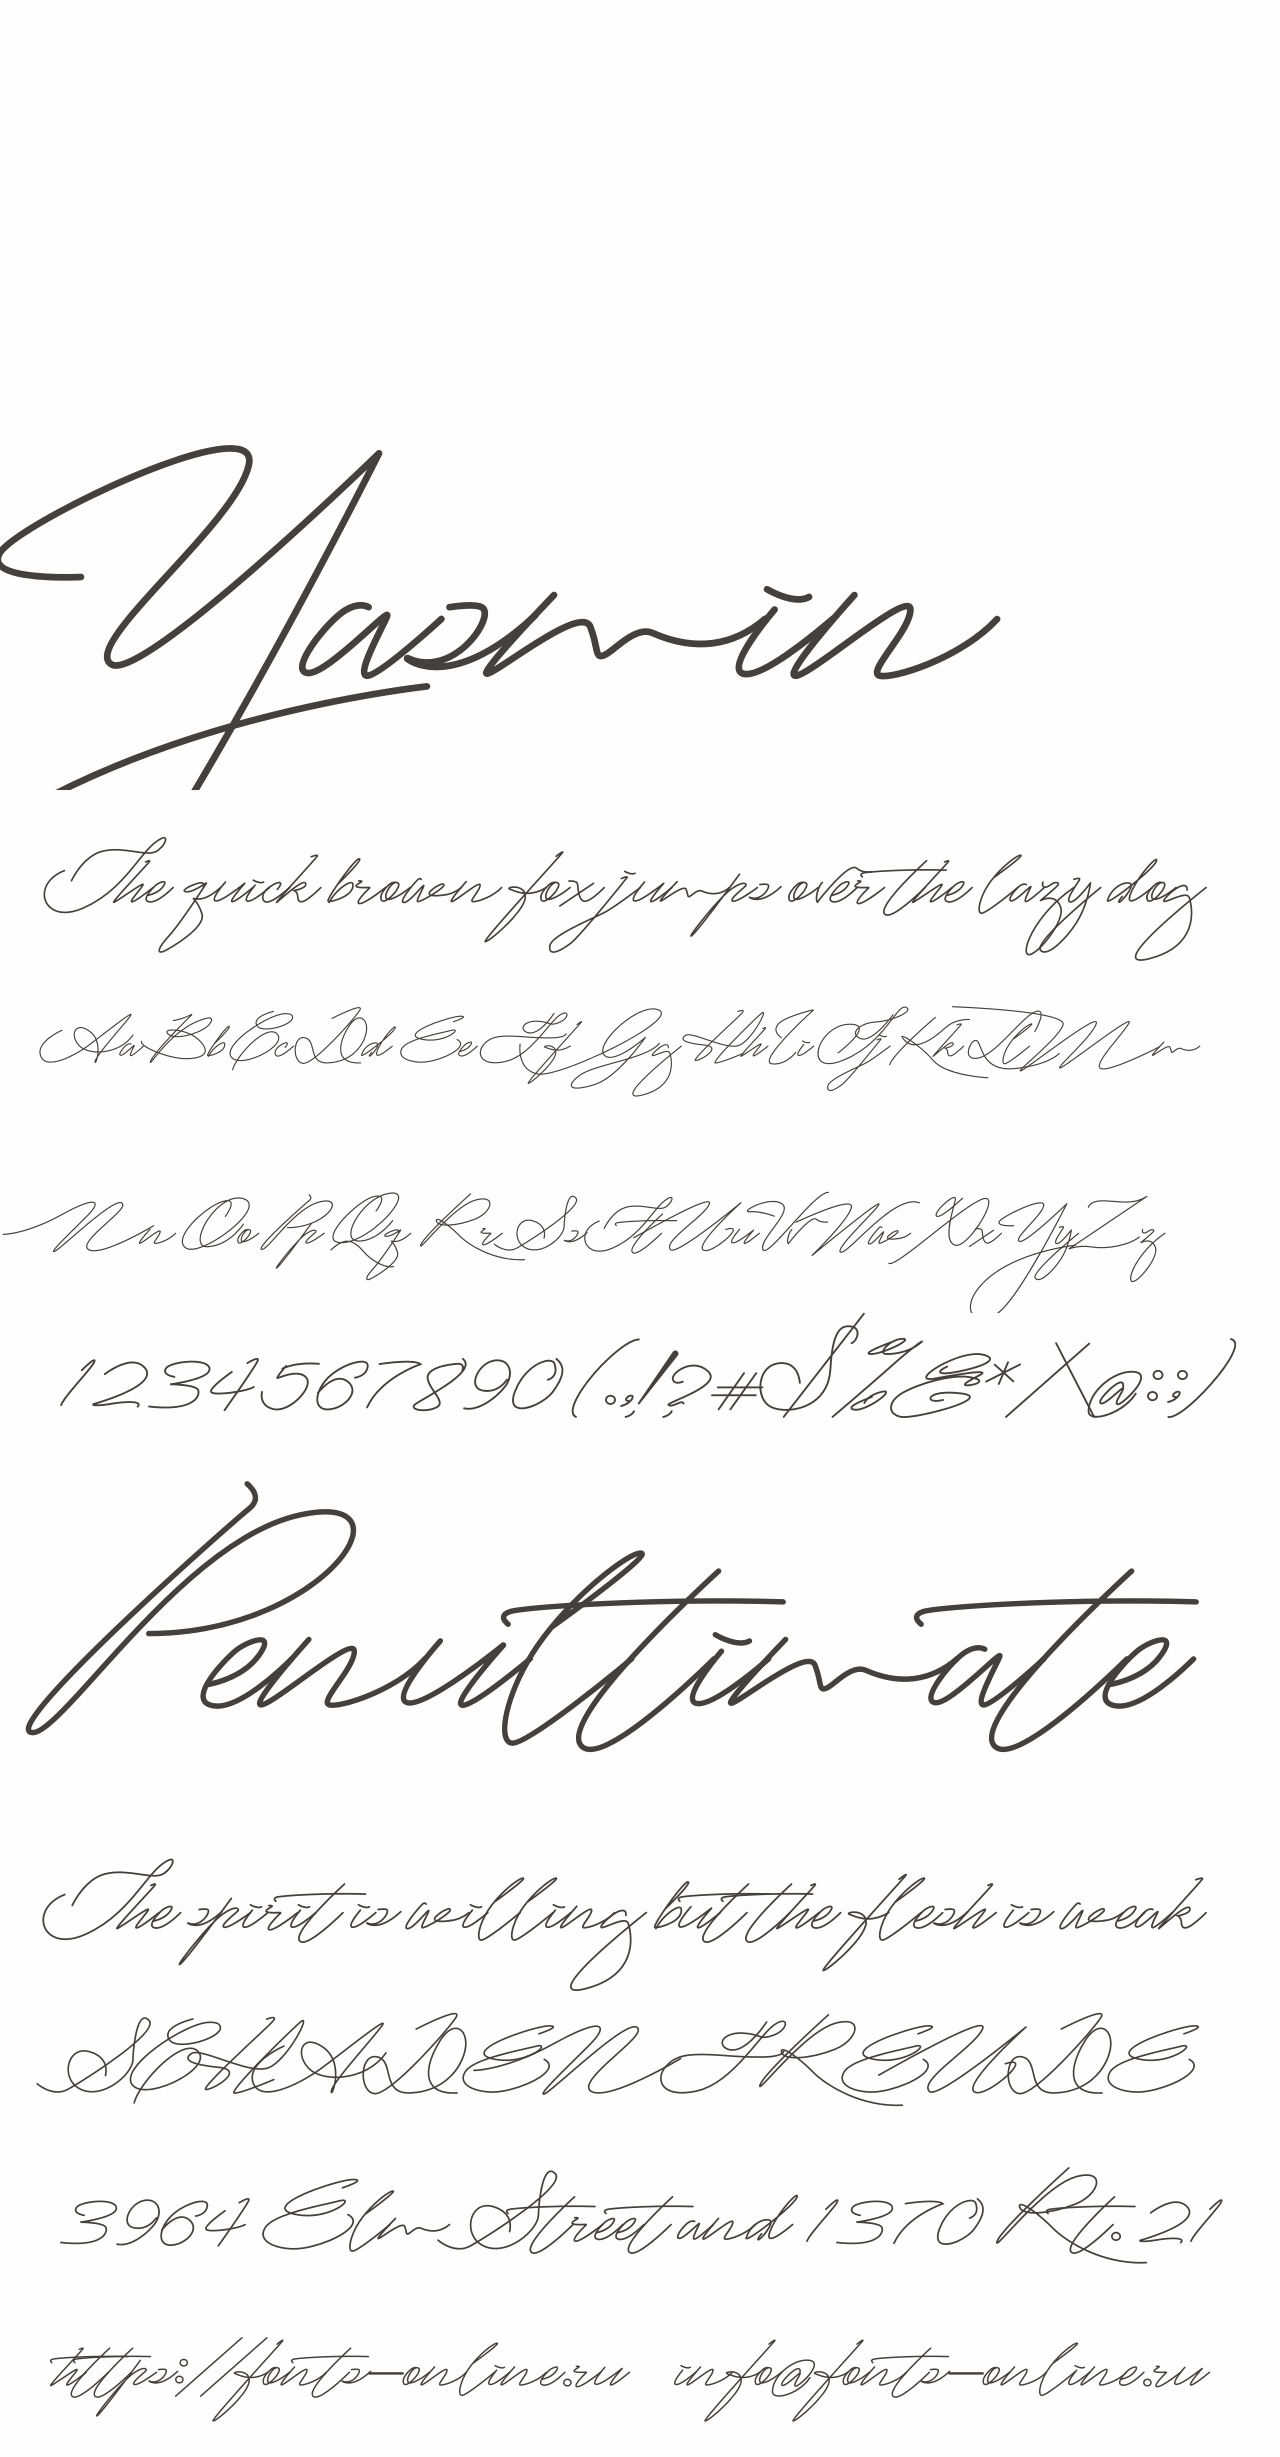 Yasmin
The quick brown fox jumps over the lazy dog
Aa Bb Cc Dd Ee Ff Gg Hh Ii Jj Kk Ll Mm
Nn Oo Pp Qq Rr Ss Tt Uu Vv Ww Xx Yy Zz
1234567890(.,!?#$%&*/\@:;)
Penultimate
The spirit is willing but the flesh is weak
SCHADENFREUDE
3964 Elm Street and 1370 Rt. 21
https://fonts-online.ru info@fonts-online.ru